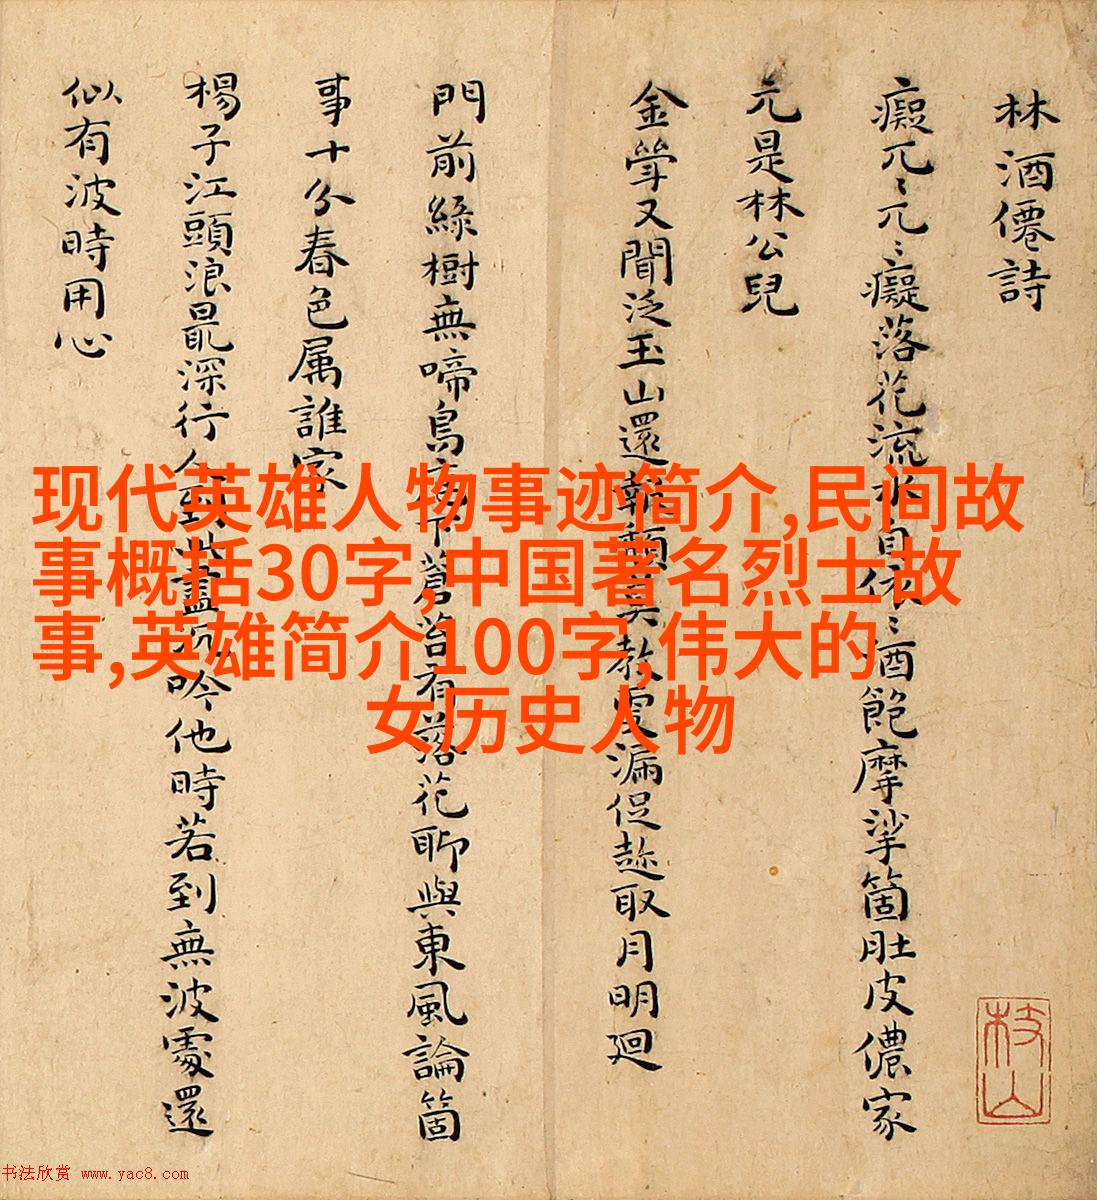 林酒僊詩
癡兀〻兀〻癡落花流水自依〻酒飽摩挲箇肚皮儂家
元是林公兒
金斝又聞泛玉山還報頽莫教更漏促趁取月明廻
門前綠樹無啼鳥庭下蒼苔有落花聊與東風論箇
事十分春色属誰家
楊子江頭浪最深行人到此盡沉吟他時若到無波處還
似有波時用心
枝山
现代英雄人物事迹简介,民间故
事概括30字,中国著名烈士故
事,英雄简介100字,伟大的
女历史人物
书法欣赏 www.yac8.com